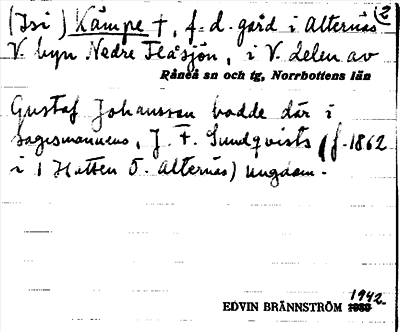 (Isi) Kämpe †, f.d. gård i Alternäs (2)
V. byn Nedre Flåsjön, i V. delen av
Råneå sn och tg, Norrbottens län
Gustaf Johansson bodde där i
sagesmannens, J. F. Sundqvists (f. 1862
i 1 Hatten Ö. Alternäs) ungdom.
1942.
EDVIN BRÄNNSTRÖM 1939